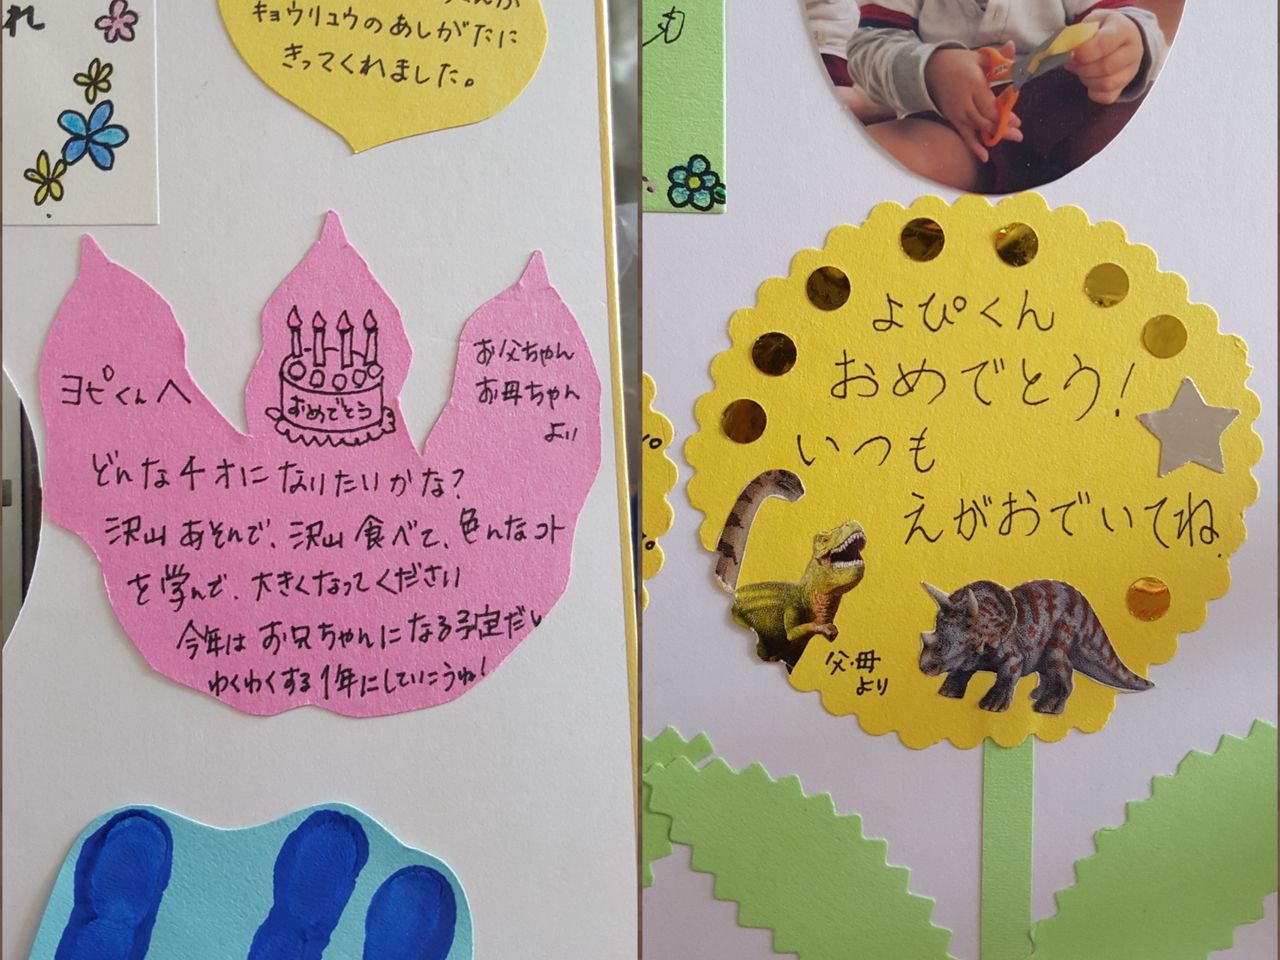 れ
キョウリュウのあしがたに
きってくれました。
ヨピくんへ
おめでとう
お父ちゃん
お母ちゃん
より
どんな4才になりたいかな?
沢山あそんで、沢山食べて、色んなコト
を学んで、大きくなってください
今年はお兄ちゃんになる予定だし
わくわくする1年にしていこうね!
も
よぴくん
おめでとう!
いつも
えがおでいてね
父・母
より